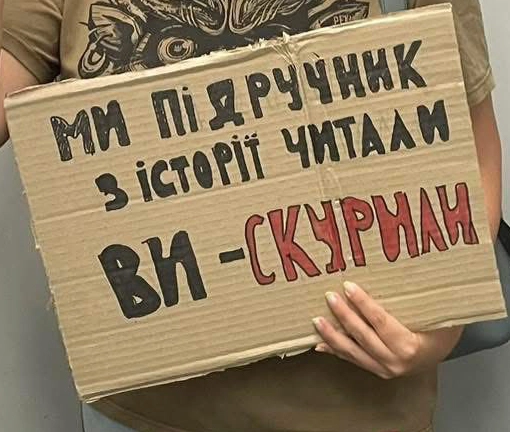 МИ ПІДРУЧНИК
З ІСТОРІЇ ЧИТАЛИ
ВИ - СКУРИЛИ